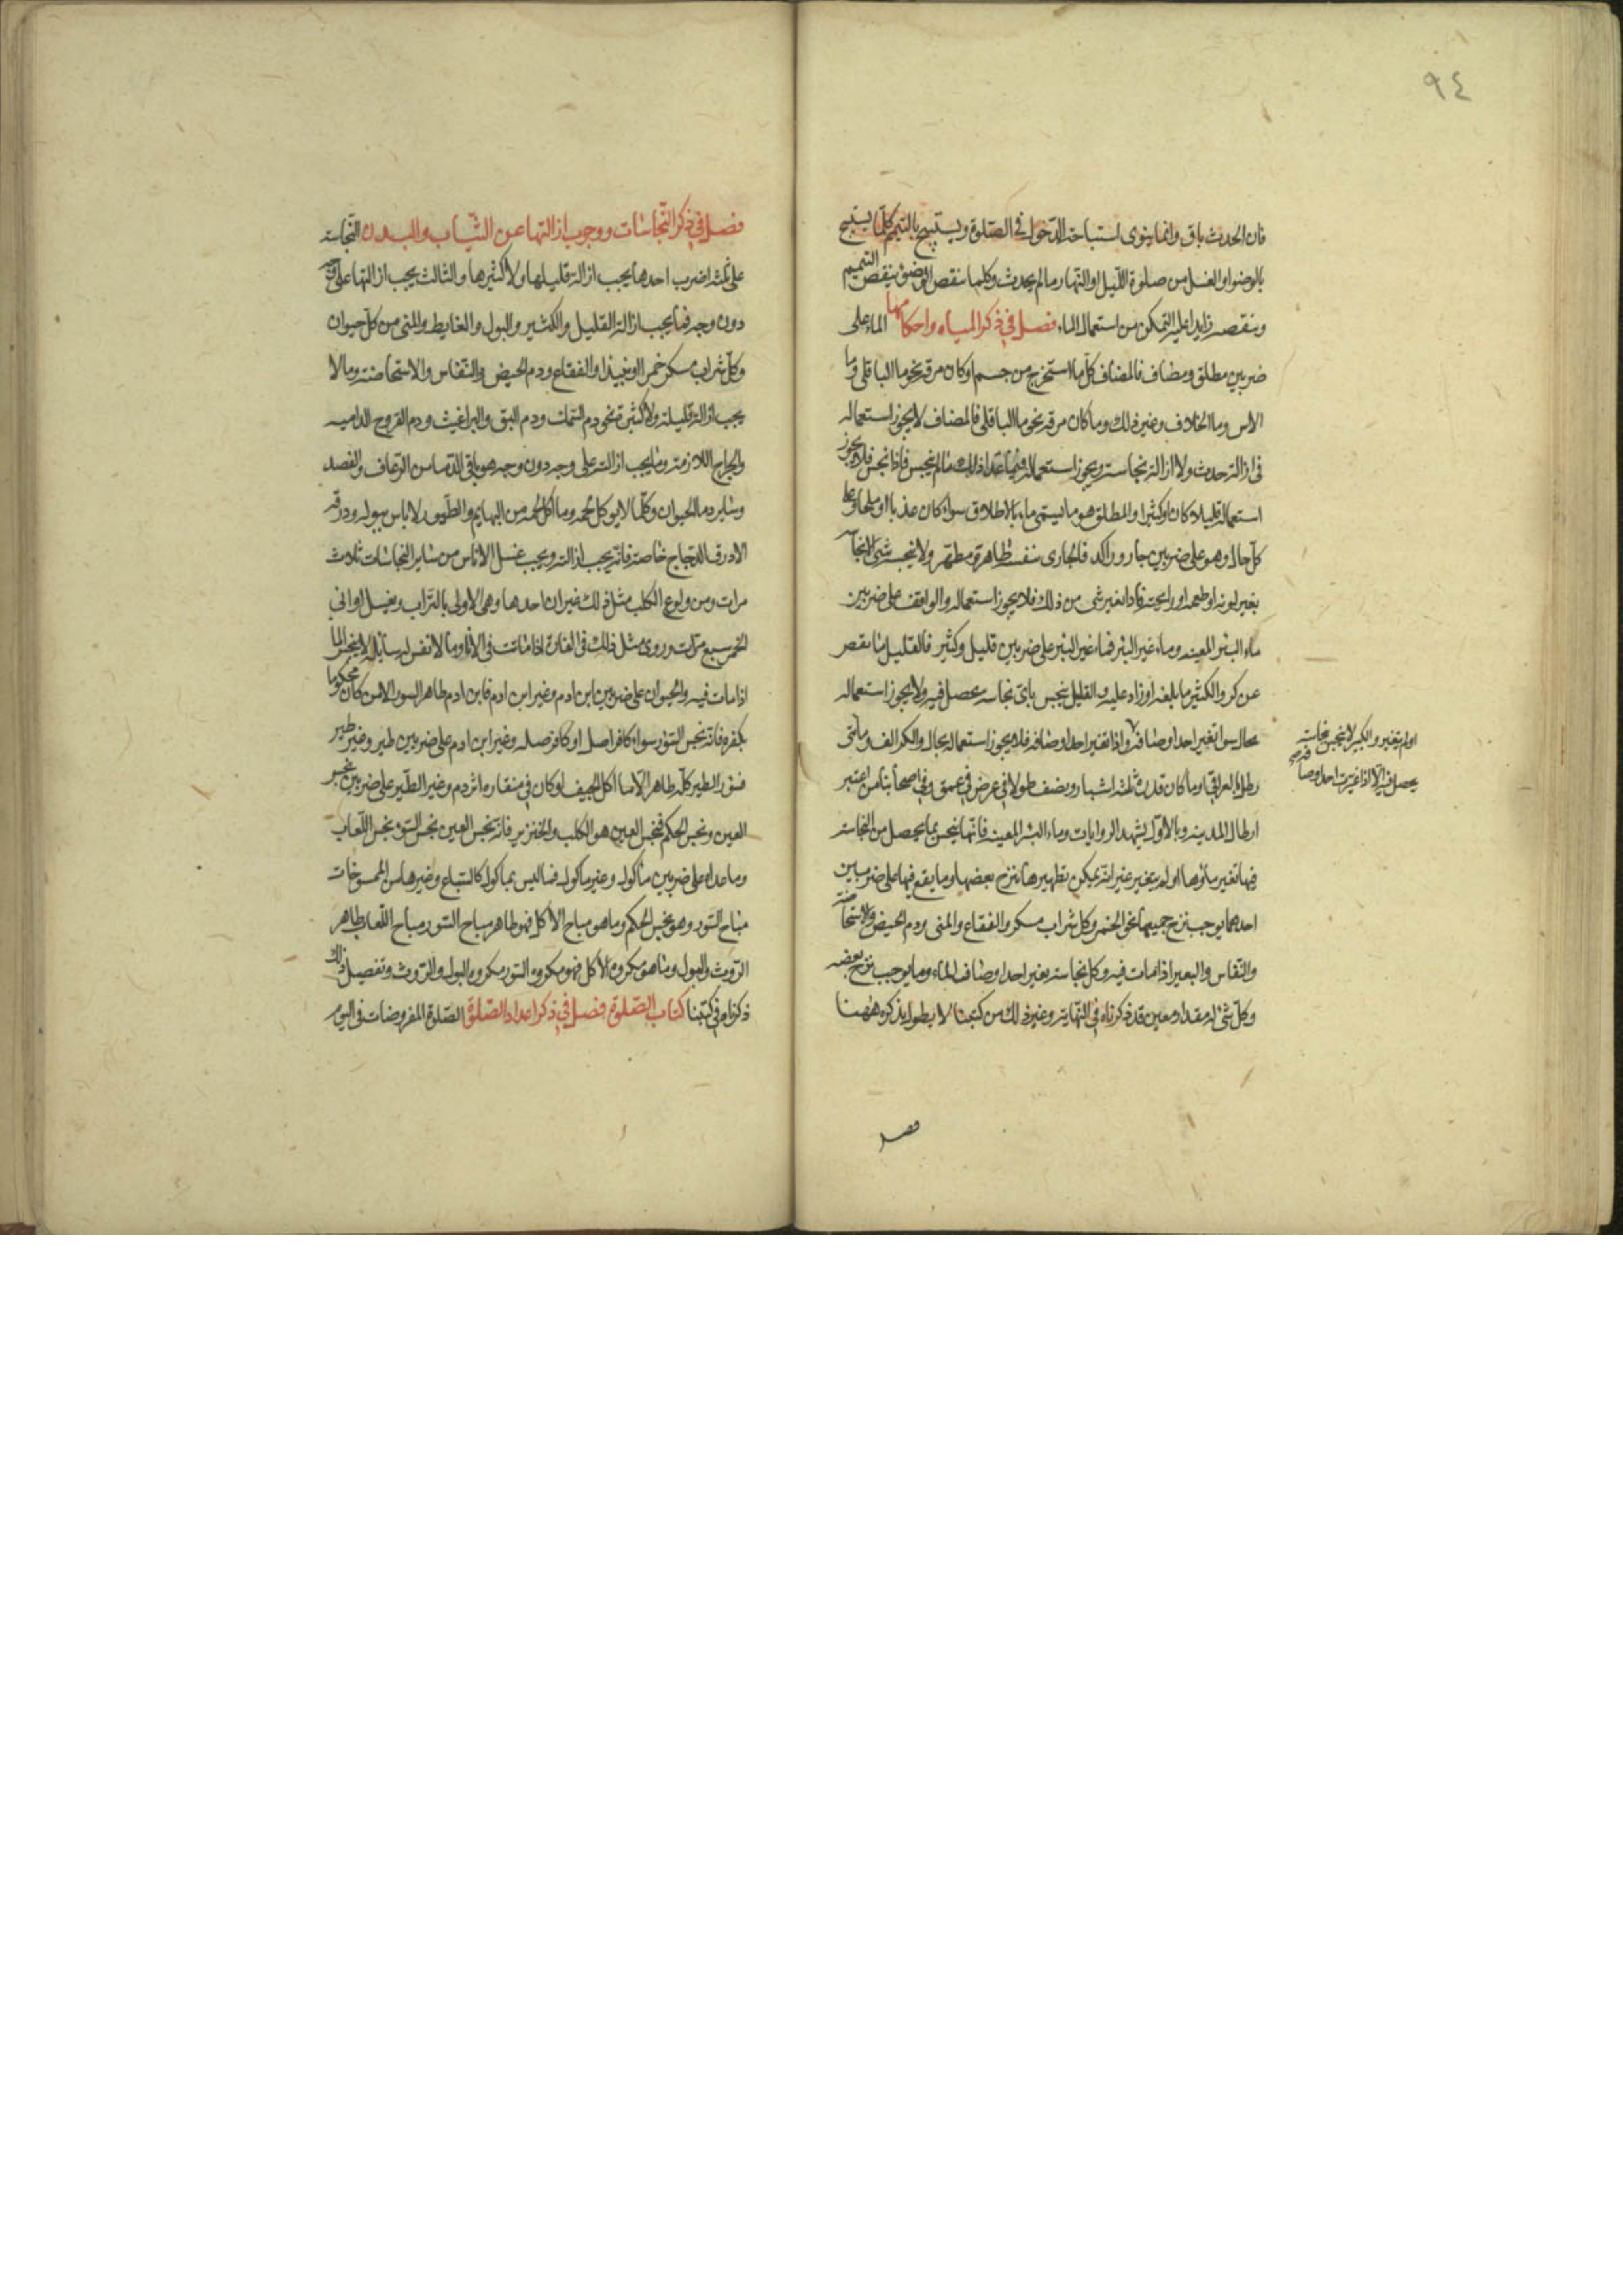 ٩٤
فان الحدث باق وانما ينوى استباحة الدخول فى الصلوة ويستبيح بالتيمم كلما يستبيح
بالوضو او الغسل من صلوة الليل او النهار ما لم يحدث وكلما ينقص الوضوء ينقص التيمم
وينقصه زايدا عليه التمكن من استعمال الماء فصل فى ذكر المياه واحكامها الماء على
ضربين مطلق ومضاف فالمضاف كل ما استخرج من جسم او كان مرقه نحو ماء الباقلى وما
الاس وما الخلاف وغير ذلك وما كان مرقه نحو ما الباقلى فالمضاف لا يجوز استعماله
فى ازالة حدث ولا ازالة نجاسة ويجوز استعماله فيما عدا ذلك ما لم ينجس فاذا نجس فلا يجوز
استعماله قليلا كان او كثيرا والمطلق هو ما يسمى ماء بالاطلاق سواء كان عذبا او ملحا وعلى
كل حال وهو على ضربين جار وراكد فالجارى بنفسه طاهرة ومطهر ولا ينجسه شى الا نجاسة
يغير لونه او طعمه او رايحته فاذا تغير شى من ذلك فلا يجوز استعماله والواقف على ضربين
ماء البئر المعينه وماء غير البئر فماء غير البئر على ضربين قليل وكثير فالقليل ما نقص
عن كر والكثير ما بلغه او زاد عليه والقليل ينجس باى نجاسه يحصل فيه ولا يجوز استعماله
بحال سوا تغير احد اوصافه واذا تغير احد اوصافه فلا يجوز استعماله بحال والكر الف ومأتى
رطل بالعراقى او ما كان قدره ثلثة اشبار ونصف طولا فى عرض فى عمق وفى اصحابنا من اعتبر
ارطال المدينه وبالاول يشهد الروايات وماء البئر المعينه فانها ينجس بما يحصل من النجاسة
فيها تغير ماؤها او لم يتغير غير انه يمكن تطهيرها بنزح بعضها وما يقع فيها على ضربين
احدهما يوجب نزح جميعها نحو الخمر وكل شراب مسكر والفقاع والمنى ودم الحيض والاستحاضة
والنفاس والبعير اذا مات فيه وكل نجاسة يغير احد اوصاف الماء وما يوجب نزح بعضه
وكل شى له مقدار معين قد ذكرناه فى النهاية وغير ذلك من كتبنا لا يطول بذكره ههنا
او لم يتغير والكثير لا ينجس بنجاسة
يحصل فيه الا اذا غيرت احد اوصافه
فصل
فصل فى ذكر النجاسات ووجوب ازالتها عن الثياب والبدن النجاسة
على ثلثة اضرب احدها يجب ازالة قليلها ولا كثيرها والثالث يجب ازالتها على وجه
دون وجه فما يجب ازالة القليل والكثير والبول والغايط والمنى من كل حيوان
وكل شراب مسكر خمرا او نبيذا والفقاع ودم الحيض والنفاس والاستحاضة وما لا
يجب ازالة قليله ولا كثيره نحو دم السمك ودم البق والبراغيث ودم القروح الداميه
والجراح اللازمة وما يجب ازالته على وجه دون وجه هو باقى الدما من الرعاف والفصد
وساير دماء الحيوان وكلما لا يوكل لحمه وما اكل لحمه من البهايم والطيور لا باس ببوله وذرقه
الا ذرق الدجاج خاصة فانه يجب ازالته ويجب غسل الاناس من ساير النجاسات ثلاث
مرات ومن ولوغ الكلب مثل ذلك غير ان احدها وهى الاولى بالتراب ويغسل اوانى
الخمر سبع مرات وروى مثل ذلك فى الفارة اذا ماتت فى الاناء وما لا نفس له سايلة لا ينجس الماء
اذا مات فيه والحيوان على ضربين ابن ادم وغير ابن ادم فابن ادم طاهر السور الا من كان محكوما
بكفره فانه نجس السؤر سواء كافر اصل او كافر صله وغير ابن ادم على ضربين طير وغير طير
فسؤر الطير كله طاهر الا ما اكل الجيف او كان فى منقاره اثر دم وغير الطير على ضربين نجس
العين ونجس الحكم فنجس العين هو الكلب والخنزير فانه نجس العين نجس السؤر نجس اللعاب
وما عداه على ضربين مأكول وغير مأكول فما ليس بمأكول كالسباع وغيرها من المسوخات
مباح السؤر وهو نجس الحكم وما هو مباح الاكل فهو طاهر مباح السؤر مباح اللعاب طاهر
الروث والبول وما هو مكروه الاكل فهو مكروه السؤر مكروه البول والروث وتفصيل ذلك
ذكرناه فى كتبنا كتاب الصلوة فصل فى ذكر اعداد الصلوة الصلوة المفروضات فى اليوم